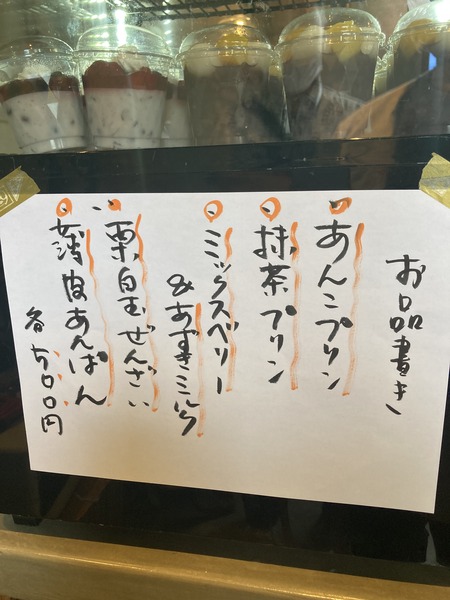 お品書き
あんこプリン
抹茶プリン
ミックスベリー
&あずきミルク
栗白玉ぜんざい
薄皮あんぱん
各500円